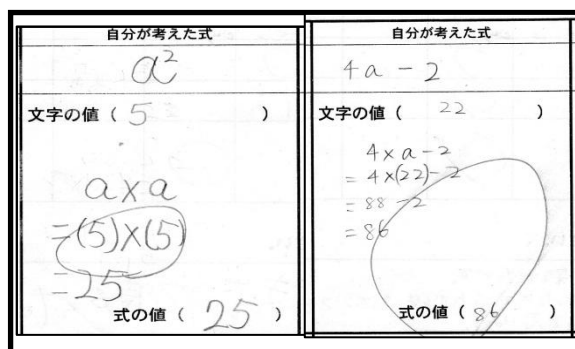 自分が考えた式
a²
文字の値 ( 5 )
a×a
=(5)×(5)
=25
式の値 ( 25 )
自分が考えた式
4a-2
文字の値 ( 22 )
4×a-2
=4×(22)-2
=88-2
=86
式の値 ( 86 )